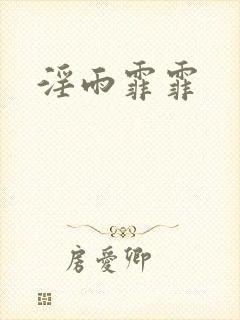 淫雨霏霏
房爱卿